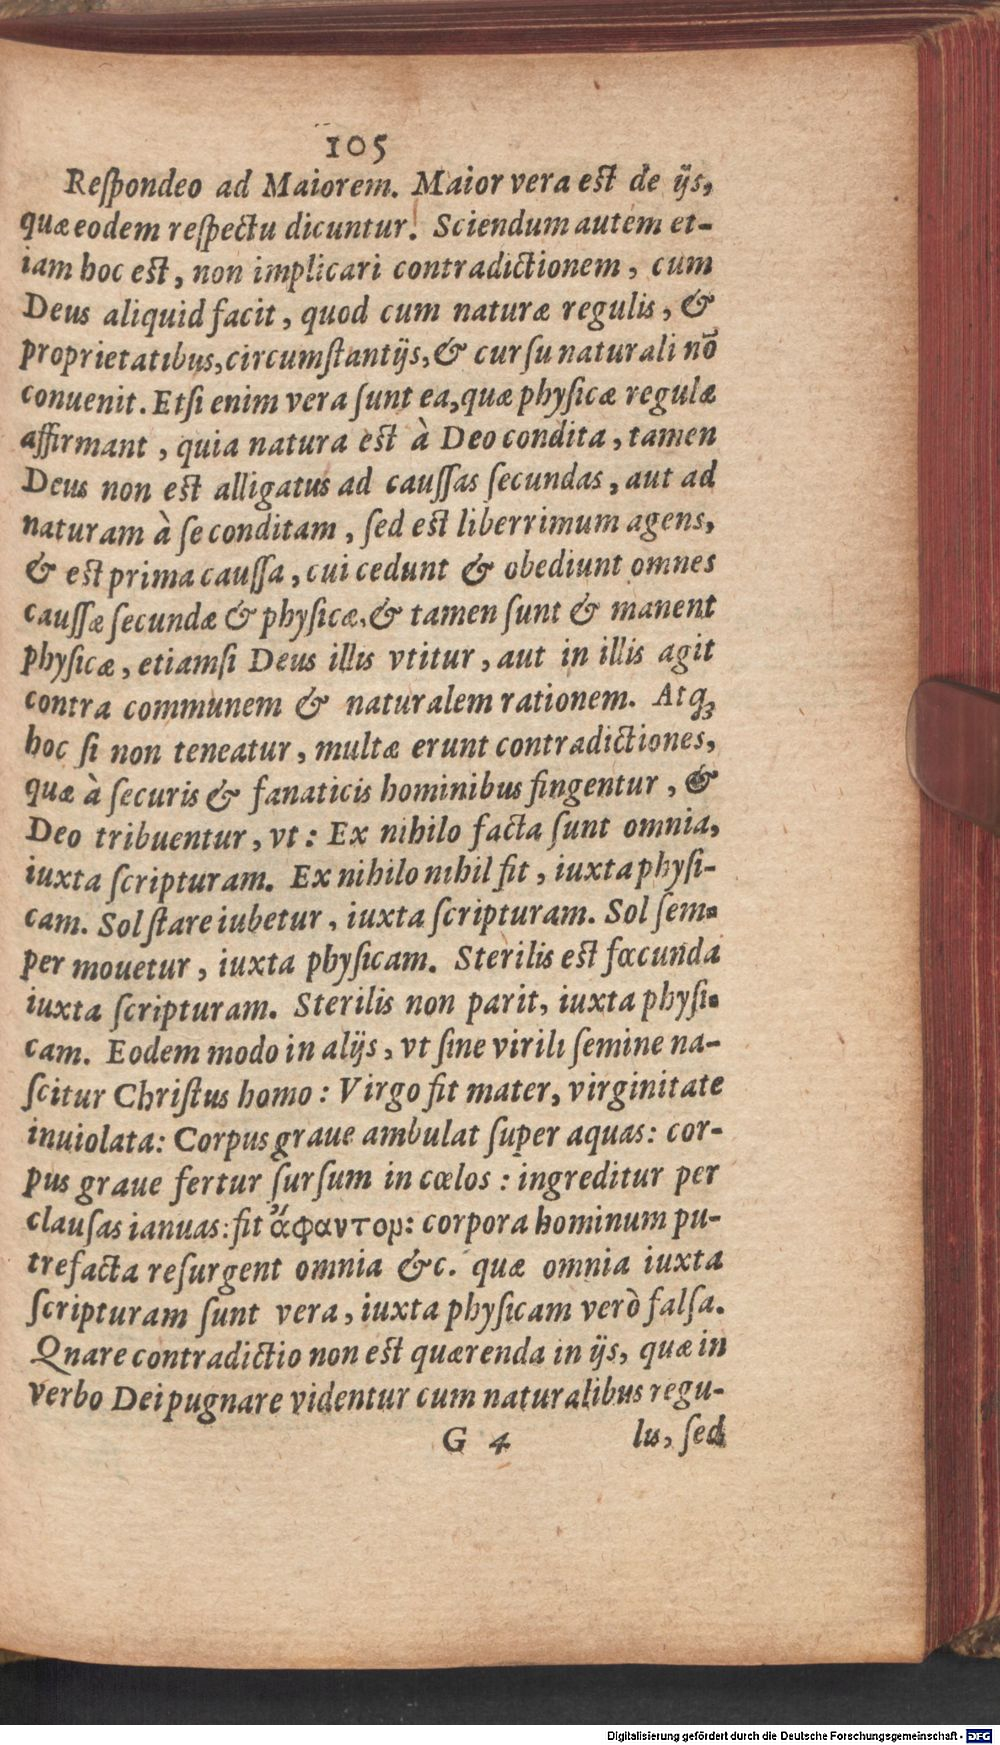 105
Reſpondeo ad Maiorem. Maior vera est de ijs,
quæ eodem reſpectu dicuntur. Sciendum autem et-
iam hoc est, non implicari contradictionem, cum
Deus aliquid facit, quod cum naturæ regulis, &
proprietatibus, circumſtantijs, & curſu naturali nō
conuenit. Etſi enim vera ſunt ea, quæ phyſicæ regulæ
affirmant, quia natura est à Deo condita, tamen
Deus non est alligatus ad cauſſas ſecundas, aut ad
naturam à ſe conditam, ſed est liberrimum agens,
& est prima cauſſa, cui cedunt & obediunt omnes
cauſſæ ſecundæ & phyſicæ, & tamen ſunt & manent
phyſicæ, etiamſi Deus illis vtitur, aut in illis agit
contra communem & naturalem rationem. Atqꝫ
hoc ſi non teneatur, multæ erunt contradictiones,
quæ à ſecuris & fanaticis hominibus fingentur, &
Deo tribuentur, vt: Ex nihilo facta ſunt omnia,
iuxta ſcripturam. Ex nihilo nihil fit, iuxta phyſi-
cam. Sol ſtare iubetur, iuxta ſcripturam. Sol ſem-
per mouetur, iuxta phyſicam. Sterilis est fœcunda
iuxta ſcripturam. Sterilis non parit, iuxta phyſi-
cam. Eodem modo in alijs, vt ſine virili ſemine na-
ſcitur Chriſtus homo: Virgo fit mater, virginitate
inuiolata: Corpus graue ambulat ſuper aquas: cor-
pus graue fertur ſurſum in cœlos: ingreditur per
clauſas ianuas: fit ἄφαντορ: corpora hominum pu-
trefacta reſurgent omnia &c. quæ omnia iuxta
ſcripturam ſunt vera, iuxta phyſicam verò falſa.
Quare contradictio non est quærenda in ijs, quæ in
verbo Dei pugnare videntur cum naturalibus regu-
G 4 lis, ſed
Digitalisierung gefördert durch die Deutsche Forschungsgemeinschaft - DFG